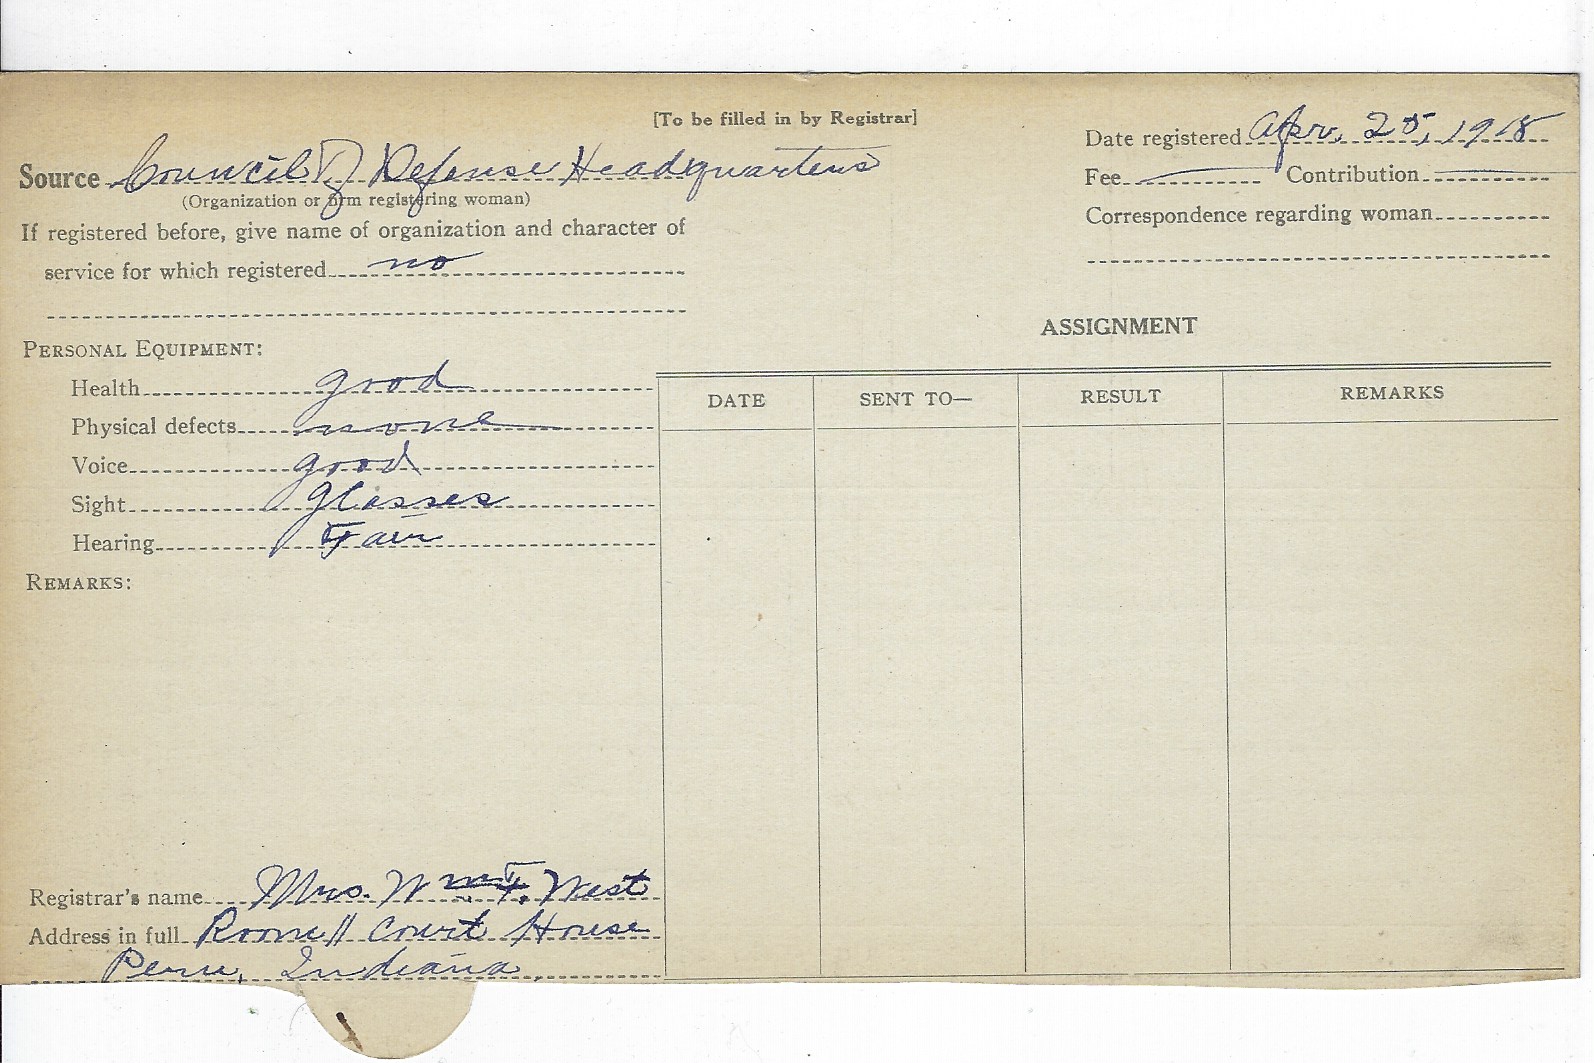 [To be filled in by Registrar]
Date registered Apr. 25, 1918
Source Council of Defense Headquarters
Fee Contribution
(Organization or firm registering woman)
Correspondence regarding woman
If registered before, give name of organization and character of
service for which registered no
ASSIGNMENT
PERSONAL EQUIPMENT:
Health good
DATE SENT TO— RESULT REMARKS
Physical defects none
Voice good
Sight glasses
Hearing Fair
REMARKS:
Registrar's name Mrs. Wm F. West
Address in full Room 11 Court House
Peru, Indiana.